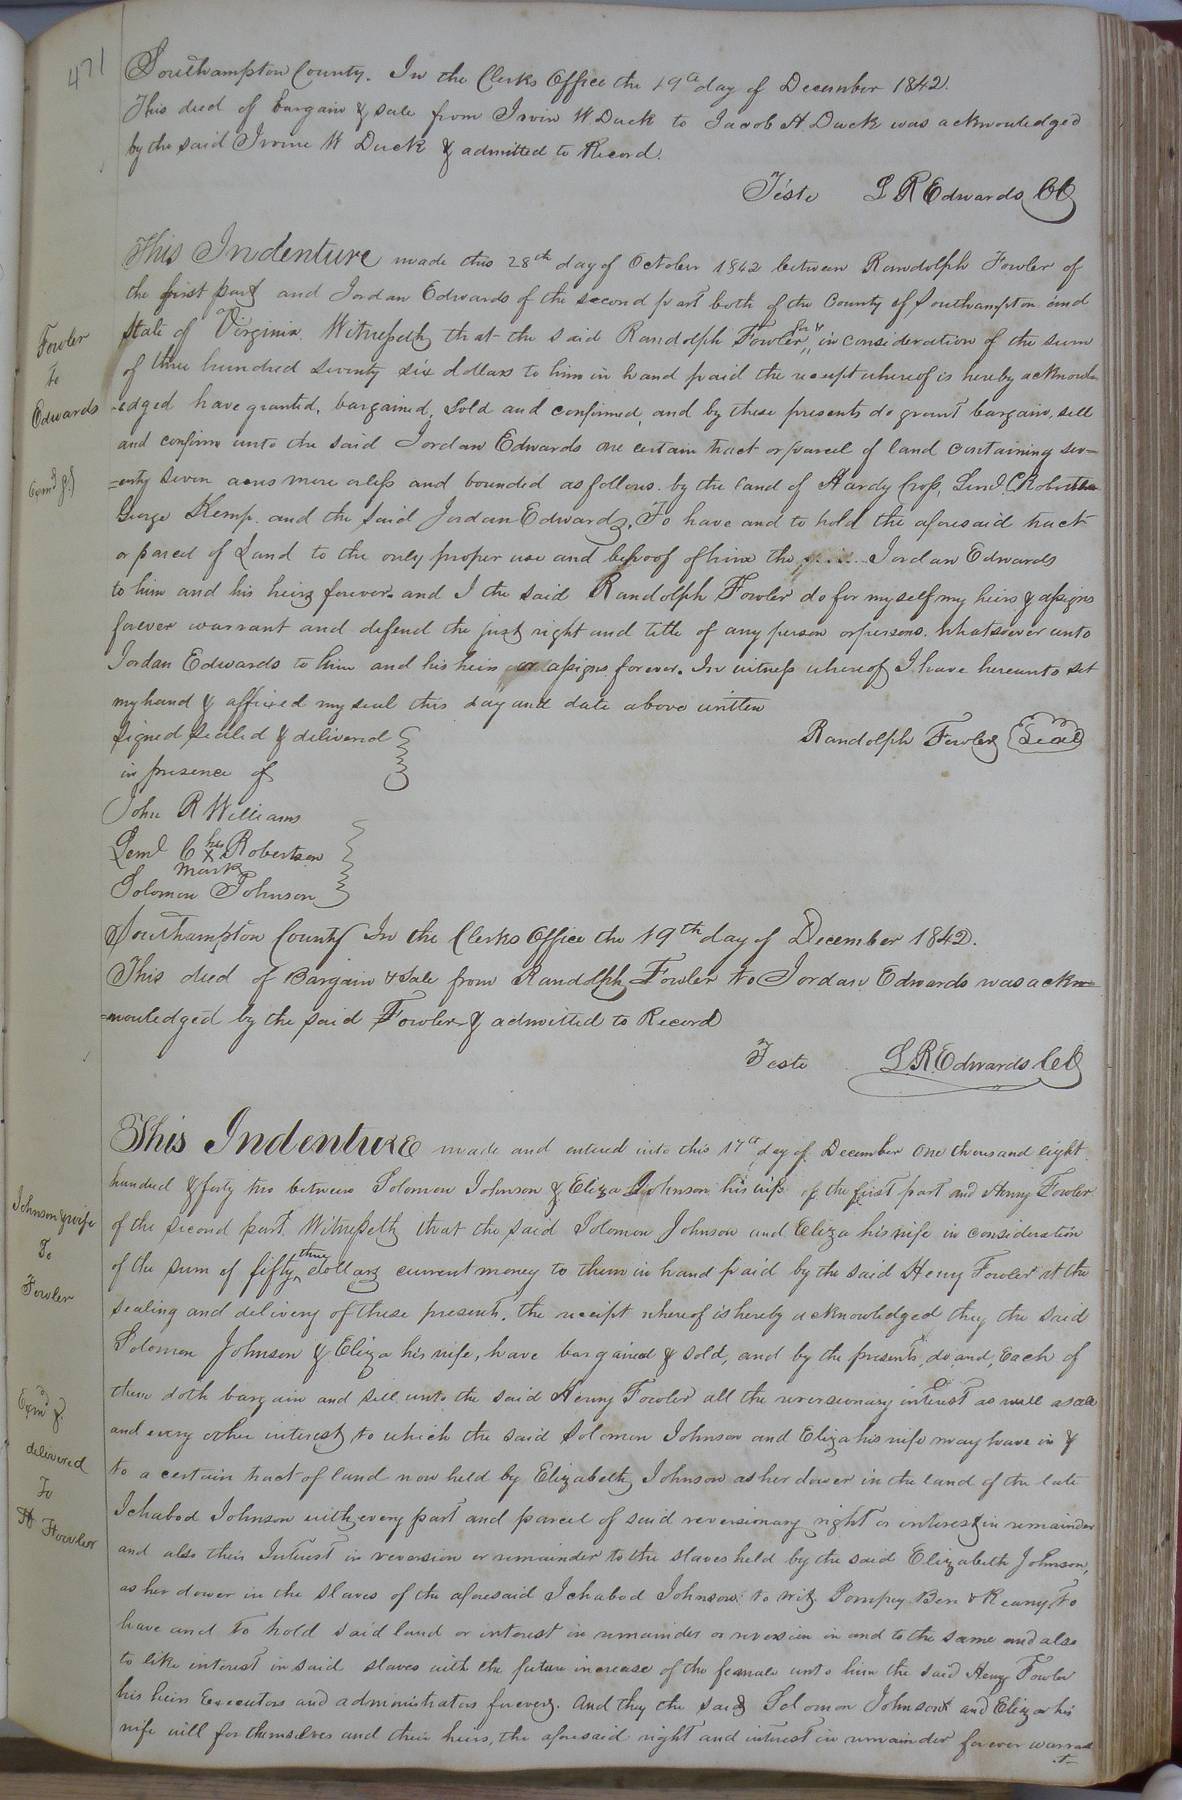 471
Southampton County. In the Clerks Office the 19th day of December 1842.
This deed of bargain & sale from Irvin W. Duck to Jacob A Duck was acknowledged
by the said Irvine W Duck & admitted to Record.
Teste L R Edwards CC
This Indenture made this 28th day of October 1842 between Randolph Fowler of
the first part and Jordan Edwards of the second part both of the County of Southampton and
State of Virginia. Witnesseth that the said Randolph Fowler, for & in consideration of the sum
of three hundred seventy six dollars to him in hand paid the receipt whereof is hereby acknowl-
-edged have granted, bargained, sold and confirmed, and by these presents do grant bargain, sell
and confirm unto the said Jordan Edwards one certain tract or parcel of land containing sev=
=enty seven acres more or less and bounded as follows. by the land of Hardy Cross, Leml. C Robertson
George Kemp. and the said Jordan Edwards, To have and to hold the aforesaid tract
or parcel of Land to the only proper use and behoof of him the said Jordan Edwards
to him and his heirs forever. and I the said Randolph Fowler do for myself my heirs & assigns
forever warrant and defend the just right and title of any person or persons whatsoever unto
Jordan Edwards to him and his heirs or assigns forever. In witness whereof I have hereunto set
my hand & affixed my seal this day and date above written
Signed sealed & delivered
in presence of
Randolph Fowler Seal
John R Williams
Leml C his X mark Robertson
Solomon Johnson
Southampton County In the Clerks Office the 19th day of December 1842.
This deed of Bargain & Sale from Randolph Fowler to Jordan Edwards was ackn=
=nowledged by the said Fowler & admitted to Record
Teste L. R. Edwards CC
This Indenture made and entered into this 17th day of December One thousand eight
hundred & forty two between Solomon Johnson & Eliza Johnson his wife of the first part and Henry Fowler
of the second part. Witnesseth that the said Solomon Johnson and Eliza his wife in consideration
of the sum of fifty three dollars current money to them in hand paid by the said Henry Fowler at the
sealing and delivery of these presents. the receipt whereof is hereby acknowledged they the said
Solomon Johnson & Eliza his wife, have bargained & sold, and by the presents, do and, Each of
them doth bargain and sell unto the said Henry Fowler all the reversionary interest as well as all
and every other interest to which the said Solomon Johnson and Eliza his wife may have in &
to a certain tract of land now held by Elizabeth Johnson as her dower in the land of the late
Ichabod Johnson with every part and parcel of said reversionary right or interest in remainder
and also their Interest in reversion or remainder to the slaves held by the said Elizabeth Johnson,
as her dower in the slaves of the aforesaid Ichabod Johnson. to wit Pompey Ben & Reany, To
have and to hold said land or interest in remainder or reversion in and to the same and also
to like interest in said slaves with the future increase of the female unto him the said Henry Fowler
his heirs Executors and administrators forever. And they the said Solomon Johnson and Eliza his
wife will for themselves and their heirs, the aforesaid right and interest in remainder forever warran
t-
Fowler
to
Edwards
Exmd
Johnson & wife
To
Fowler
Exmd &
delivered
To
H Fowler